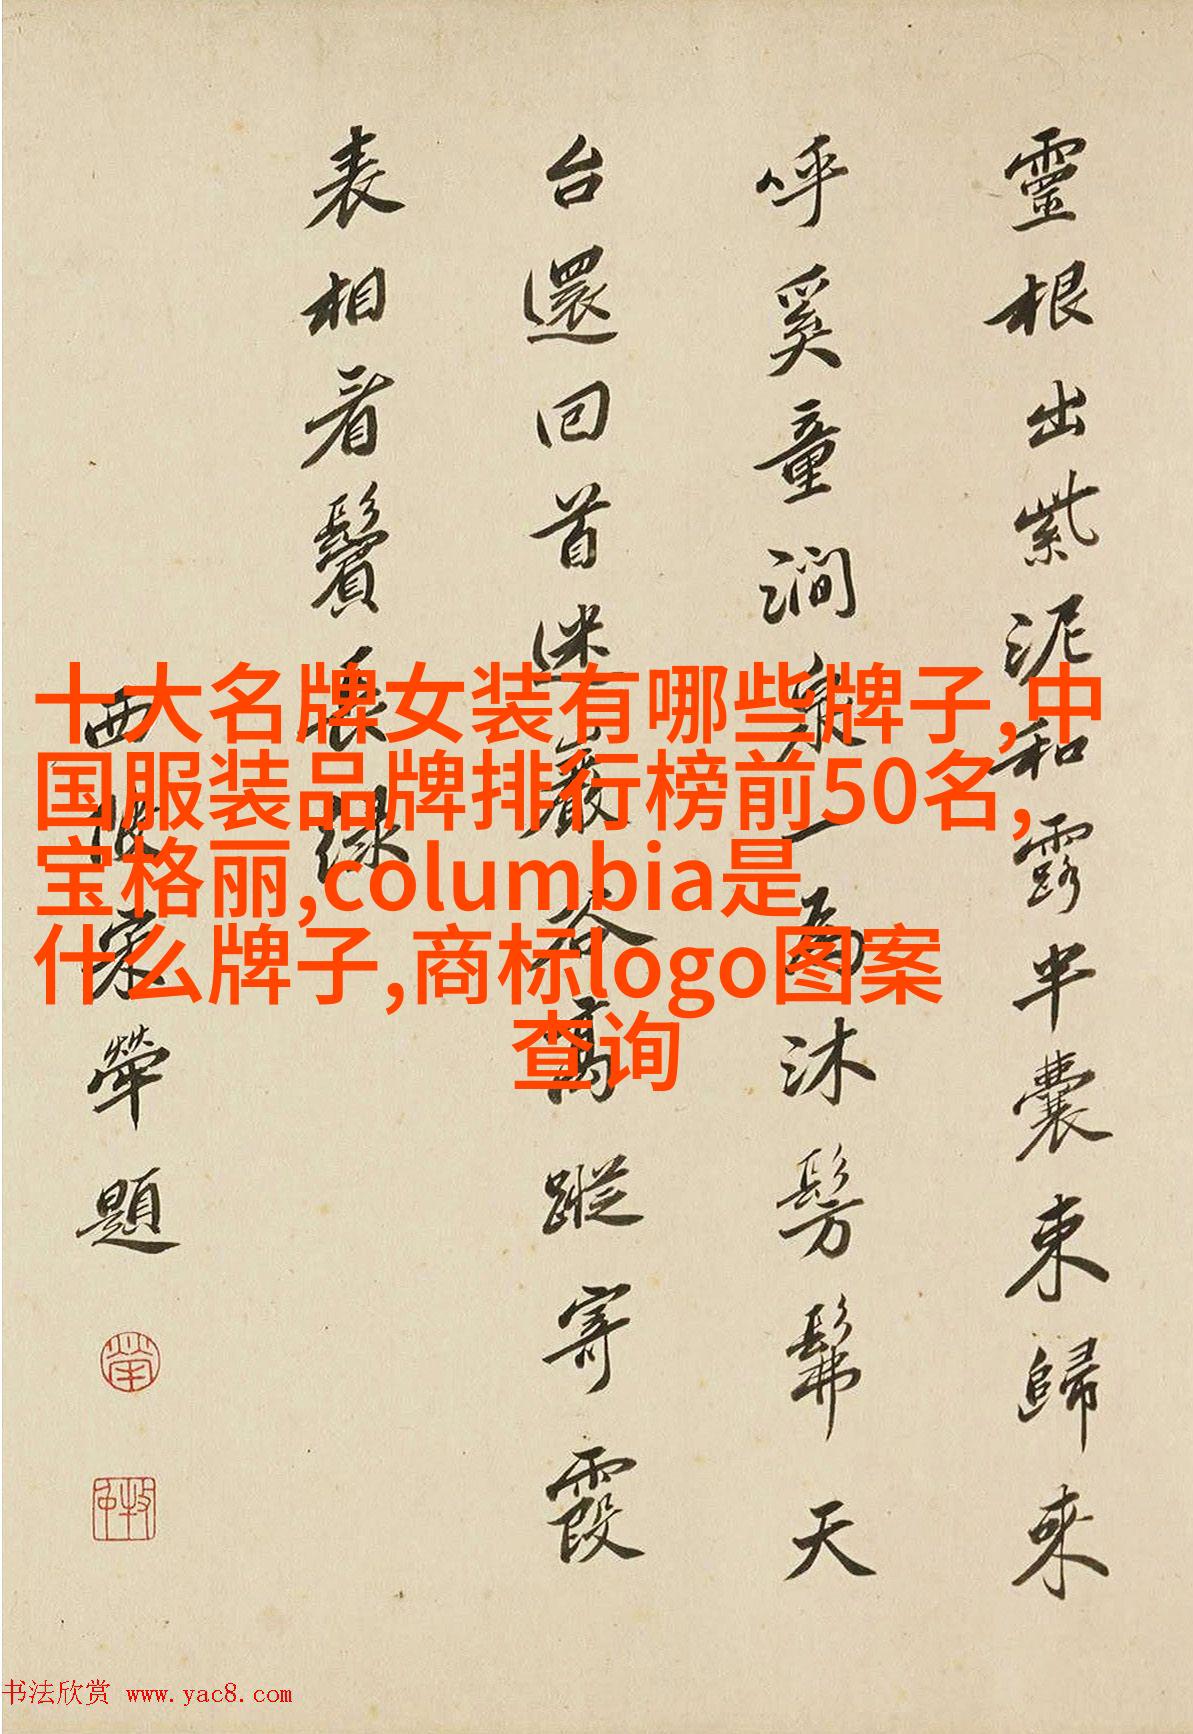 靈根出紫泥和露半囊束歸來
呼奚童澗泉一為沐髣髴天
台還回首迷巖谷高蹤寄霞
表相看鬢長綠
西陂宋犖題
十大名牌女装有哪些牌子,中
国服装品牌排行榜前50名,
宝格丽,columbia是
什么牌子,商标logo图案
查询
书法欣赏 www.yac8.com